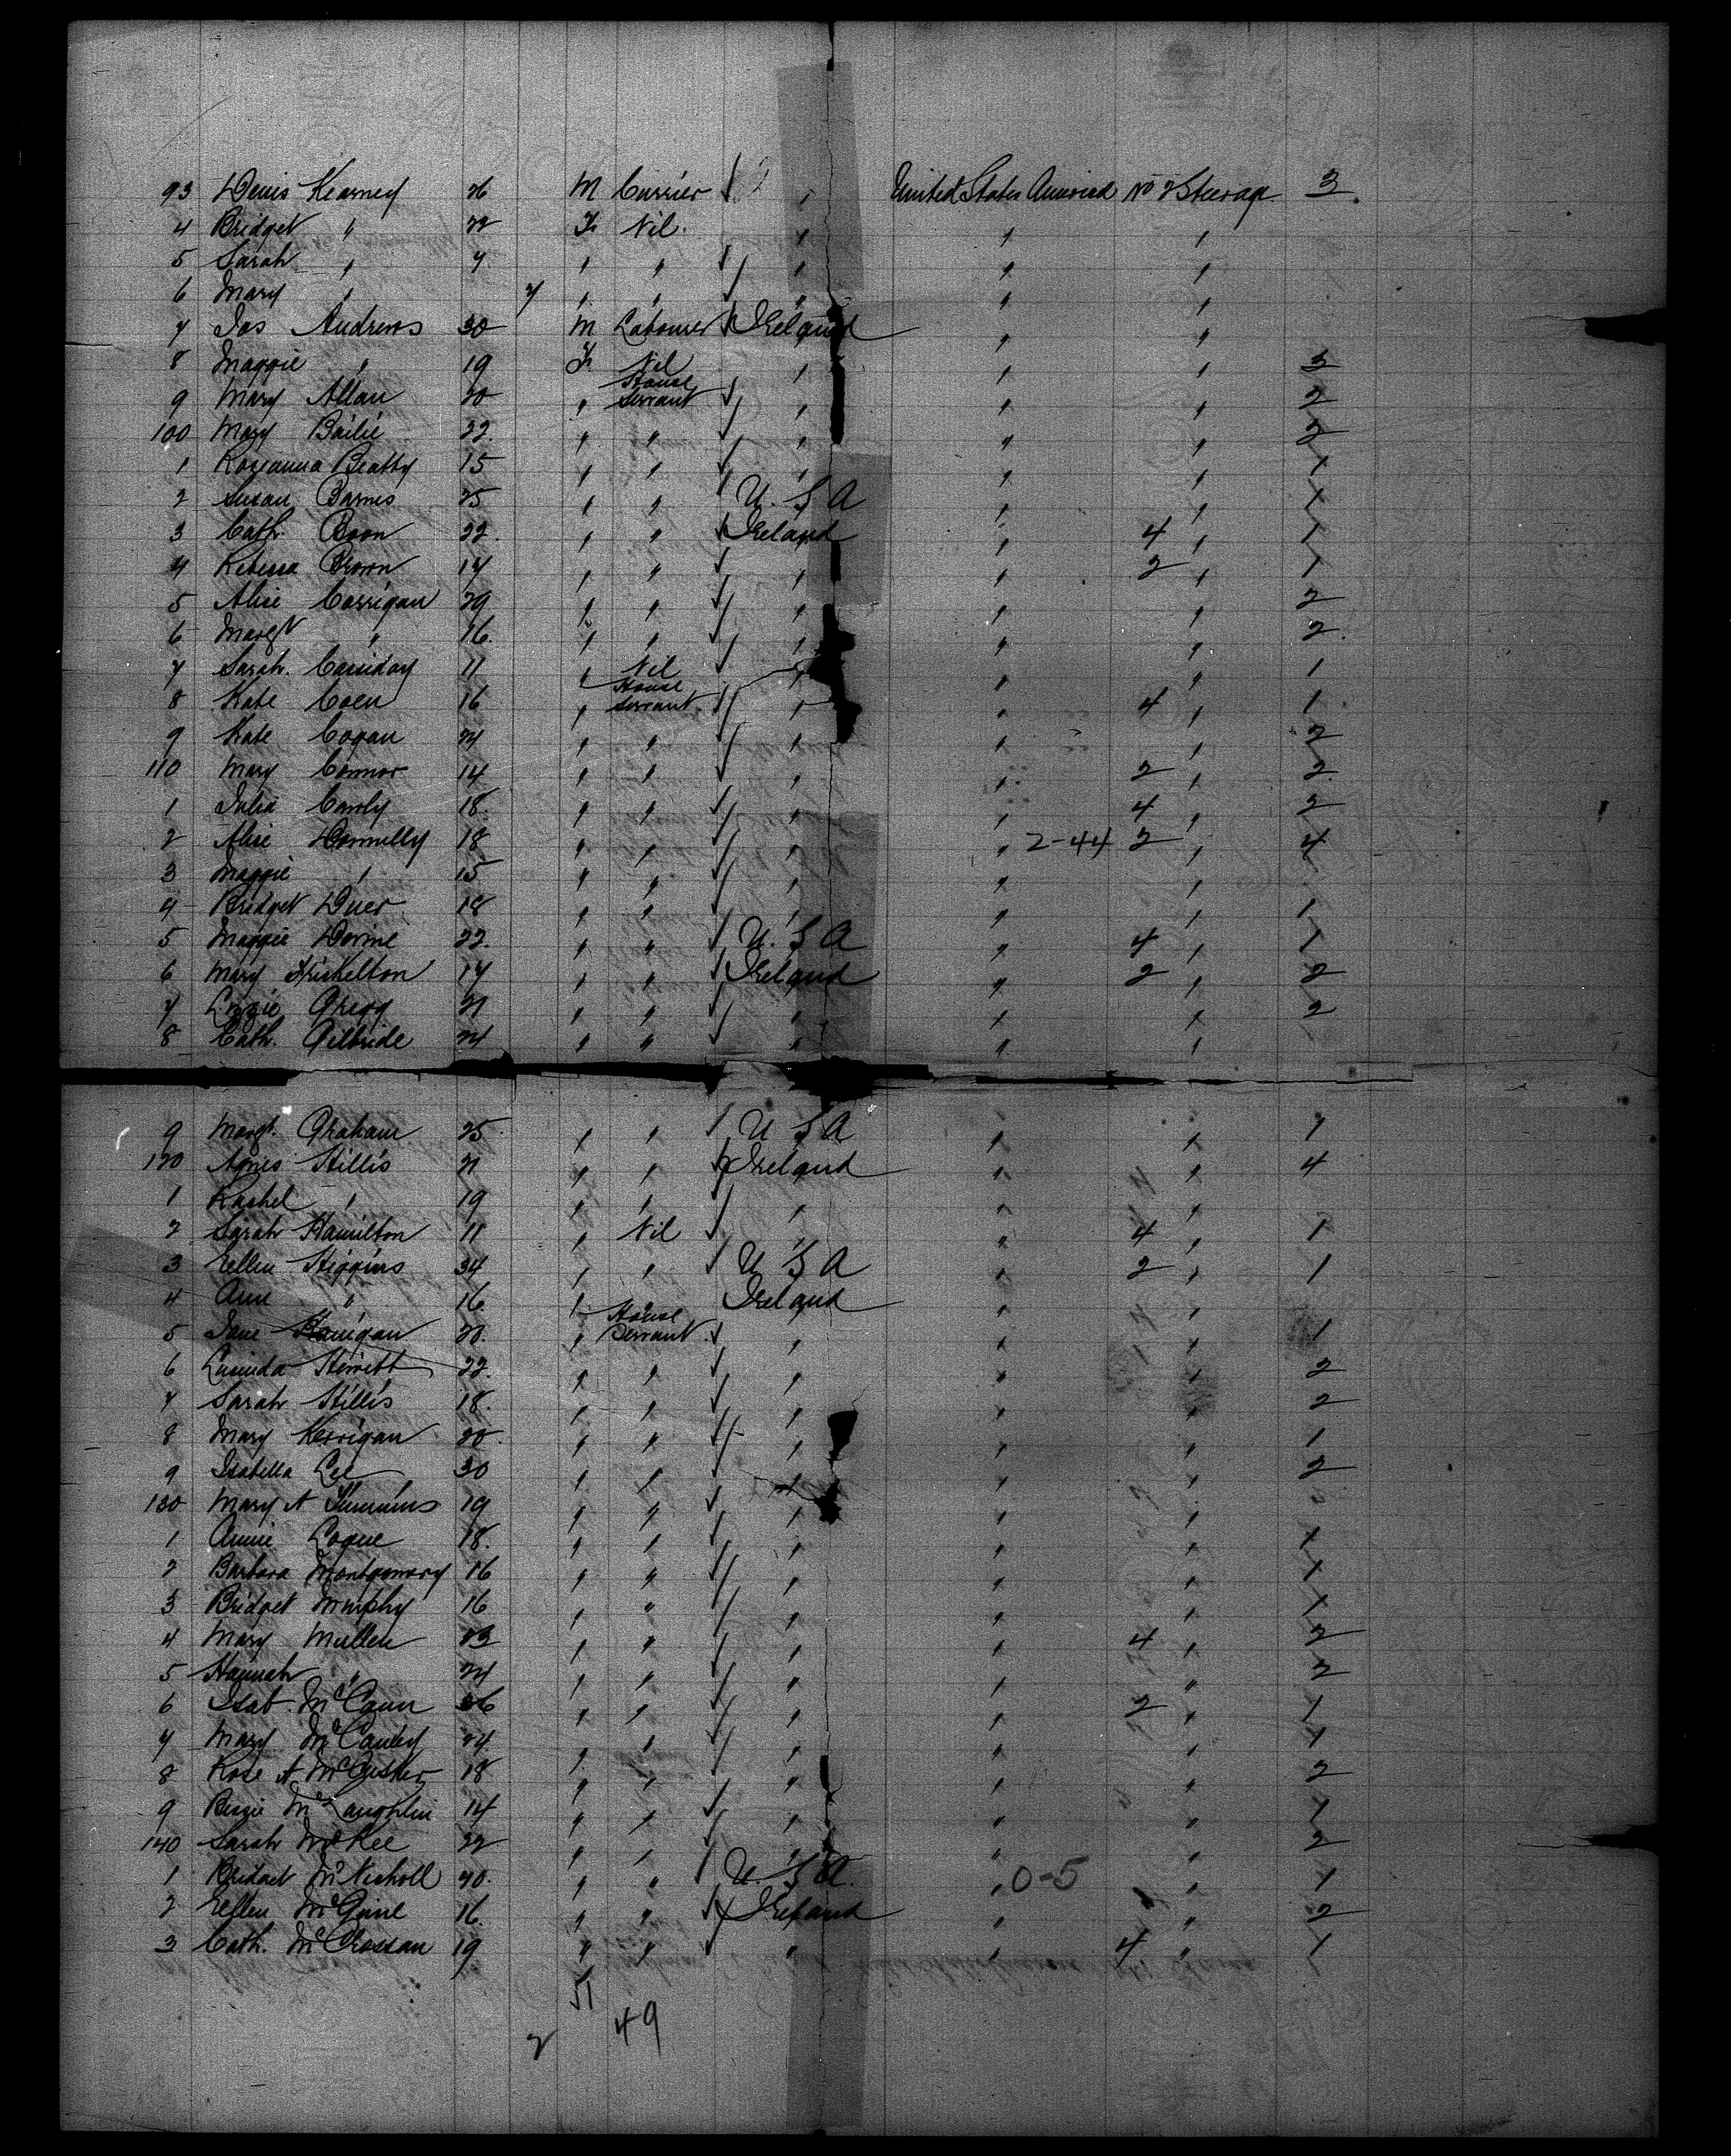 93 Denis Kearney 26 M Currier " United States America No 2 Steerage 3
4 Bridget " 22 F Nil. " " "
5 Sarah " 4 " " " " "
6 Mary " " " " " "
7 Jas Andrews 30 M Labourer Ireland " "
8 Maggie " 19 F Nil " " " 3
9 Mary Allan 20 " House Servant " " " 2
100 Mary Bailie 22. " " " " " 2
1 Roseanna Beatty 15 " " " " " 1
2 Susan Barnes 25 " " U. S A " " 1
3 Cath. Boon 22. " " Ireland " 4 " 1
4 Rebecca Brown 17 " " " " 2 " 1
5 Alice Corrigan 29 " " " " " 2
6 Margt " 16. " " " " " 2.
7 Sarah. Cassiday 11 " Nil " " " 1
8 Kate Coen 16 " House Servant. " " 4 " 1
9 Kate Cogan 24 " " " " " 2
110 Mary Connor 14 " " " " 2 " 2
1 Julia 18. " " " " 4 " 2
2 Alice Donnelly 18 " " " " 2-44 2 " 4
3 Maggie " 15 " " " " "
4 Bridget Duer 18 " " " " " 1
5 Maggie Devine 22. " " U. S A " 4 " 1
6 Mary 17 " " Ireland " 2 " 2
7 Lizzie Gregg 21 " " " " " 2
8 Cath. Gilbride 24 " " " " "
9 Margt. Graham 25 " " U S A " " 1
120 Agnes Hillis 21 " " Ireland " " 4
1 Rachel " 19 " " " " "
2 Sarah Hamilton 11 " Nil " " 4 " 1
3 Ellen Higgins 34 " " U S A " 2 " 1
4 Ann " 16. " Ireland " "
5 Jane 20. " House Servant. " " " 1
6 Lucinda Hewitt 22. " " " " " 2
7 Sarah Hillis 18. " " " " " 2
8 Mary Kerrigan 20. " " " " " 1
9 Isabella Lee 30 " " " " " 2
130 Mary A 19 " " " " "
1 Annie Logue 18. " " " " " 1
2 Barbara Montgomery 16 " " " " " 1
3 Bridget Murphy 16 " " " " " 1
4 Mary Mullen 23 " " " " 4 " 2
5 Hannah " 24 " " " " " 2
6 Isab. McCann 36 " " " " 2 " 1
7 Mary McCauley 24 " " " " " 1
8 Rose A McCusker 18 " " " " " 2
9 Bessie McLaughlin 14 " " " " " 1
140 Sarah McKee 22 " " " " " 2
1 Bridget McNicholl 20. " " U. S A. " 0-5 " 1
2 Ellen 16. " " Ireland " " 2
3 Cath. McCrossan 19 " " " " 4 " 1
51
2 49